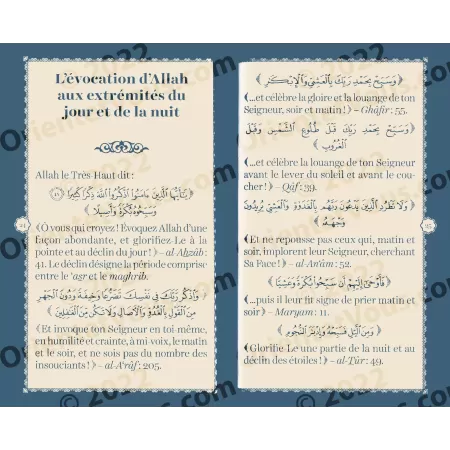 L'évocation d'Allah
aux extrémités du
jour et de la nuit
Allah le Très Haut dit :
﴿ يَٰٓأَيُّهَا ٱلَّذِينَ ءَامَنُوا۟ ٱذْكُرُوا۟ ٱللَّهَ ذِكْرًا كَثِيرًا ٤١
وَسَبِّحُوهُ بُكْرَةً وَأَصِيلًا ﴾
﴾Ô vous qui croyez ! Évoquez Allah d'une
façon abondante, et glorifiez-Le à la
pointe et au déclin du jour !﴿ – al-Ahzâb :
41. Le déclin désigne la période comprise
entre le 'asr et le maghrib.
﴿ وَٱذْكُر رَّبَّكَ فِى نَفْسِكَ تَضَرُّعًا وَخِيفَةً وَدُونَ ٱلْجَهْرِ
مِنَ ٱلْقَوْلِ بِٱلْغُدُوِّ وَٱلْءَاصَالِ وَلَا تَكُن مِّنَ ٱلْغَٰفِلِينَ ﴾
﴾Et invoque ton Seigneur en toi-même,
en humilité et crainte, à mi-voix, le matin
et le soir, et ne sois pas du nombre des
insouciants !﴿ – al-A'râf : 205.
﴿ وَسَبِّحْ بِحَمْدِ رَبِّكَ بِٱلْعَشِىِّ وَٱلْإِبْكَٰرِ ﴾
﴾...et célèbre la gloire et la louange de ton
Seigneur, soir et matin !﴿ – Ghâfir : 55.
﴿ وَسَبِّحْ بِحَمْدِ رَبِّكَ قَبْلَ طُلُوعِ ٱلشَّمْسِ وَقَبْلَ
ٱلْغُرُوبِ ﴾
﴾...et célèbre la louange de ton Seigneur
avant le lever du soleil et avant le cou-
cher !﴿ – Qâf : 39.
﴿ وَلَا تَطْرُدِ ٱلَّذِينَ يَدْعُونَ رَبَّهُم بِٱلْغَدَوٰةِ وَٱلْعَشِىِّ يُرِيدُونَ
وَجْهَهُۥ ﴾
﴾Et ne repousse pas ceux qui, matin et
soir, implorent leur Seigneur, cherchant
Sa Face !﴿ – al-An'âm : 52.
﴿ فَأَوْحَىٰٓ إِلَيْهِمْ أَن سَبِّحُوا۟ بُكْرَةً وَعَشِيًّا ﴾
﴾...puis il leur fit signe de prier matin et
soir﴿ – Maryam : 11.
﴿ وَمِنَ ٱلَّيْلِ فَسَبِّحْهُ وَإِدْبَٰرَ ٱلنُّجُومِ ﴾
﴾Glorifie-Le une partie de la nuit et au
déclin des étoiles !﴿ – al-Tûr : 49.